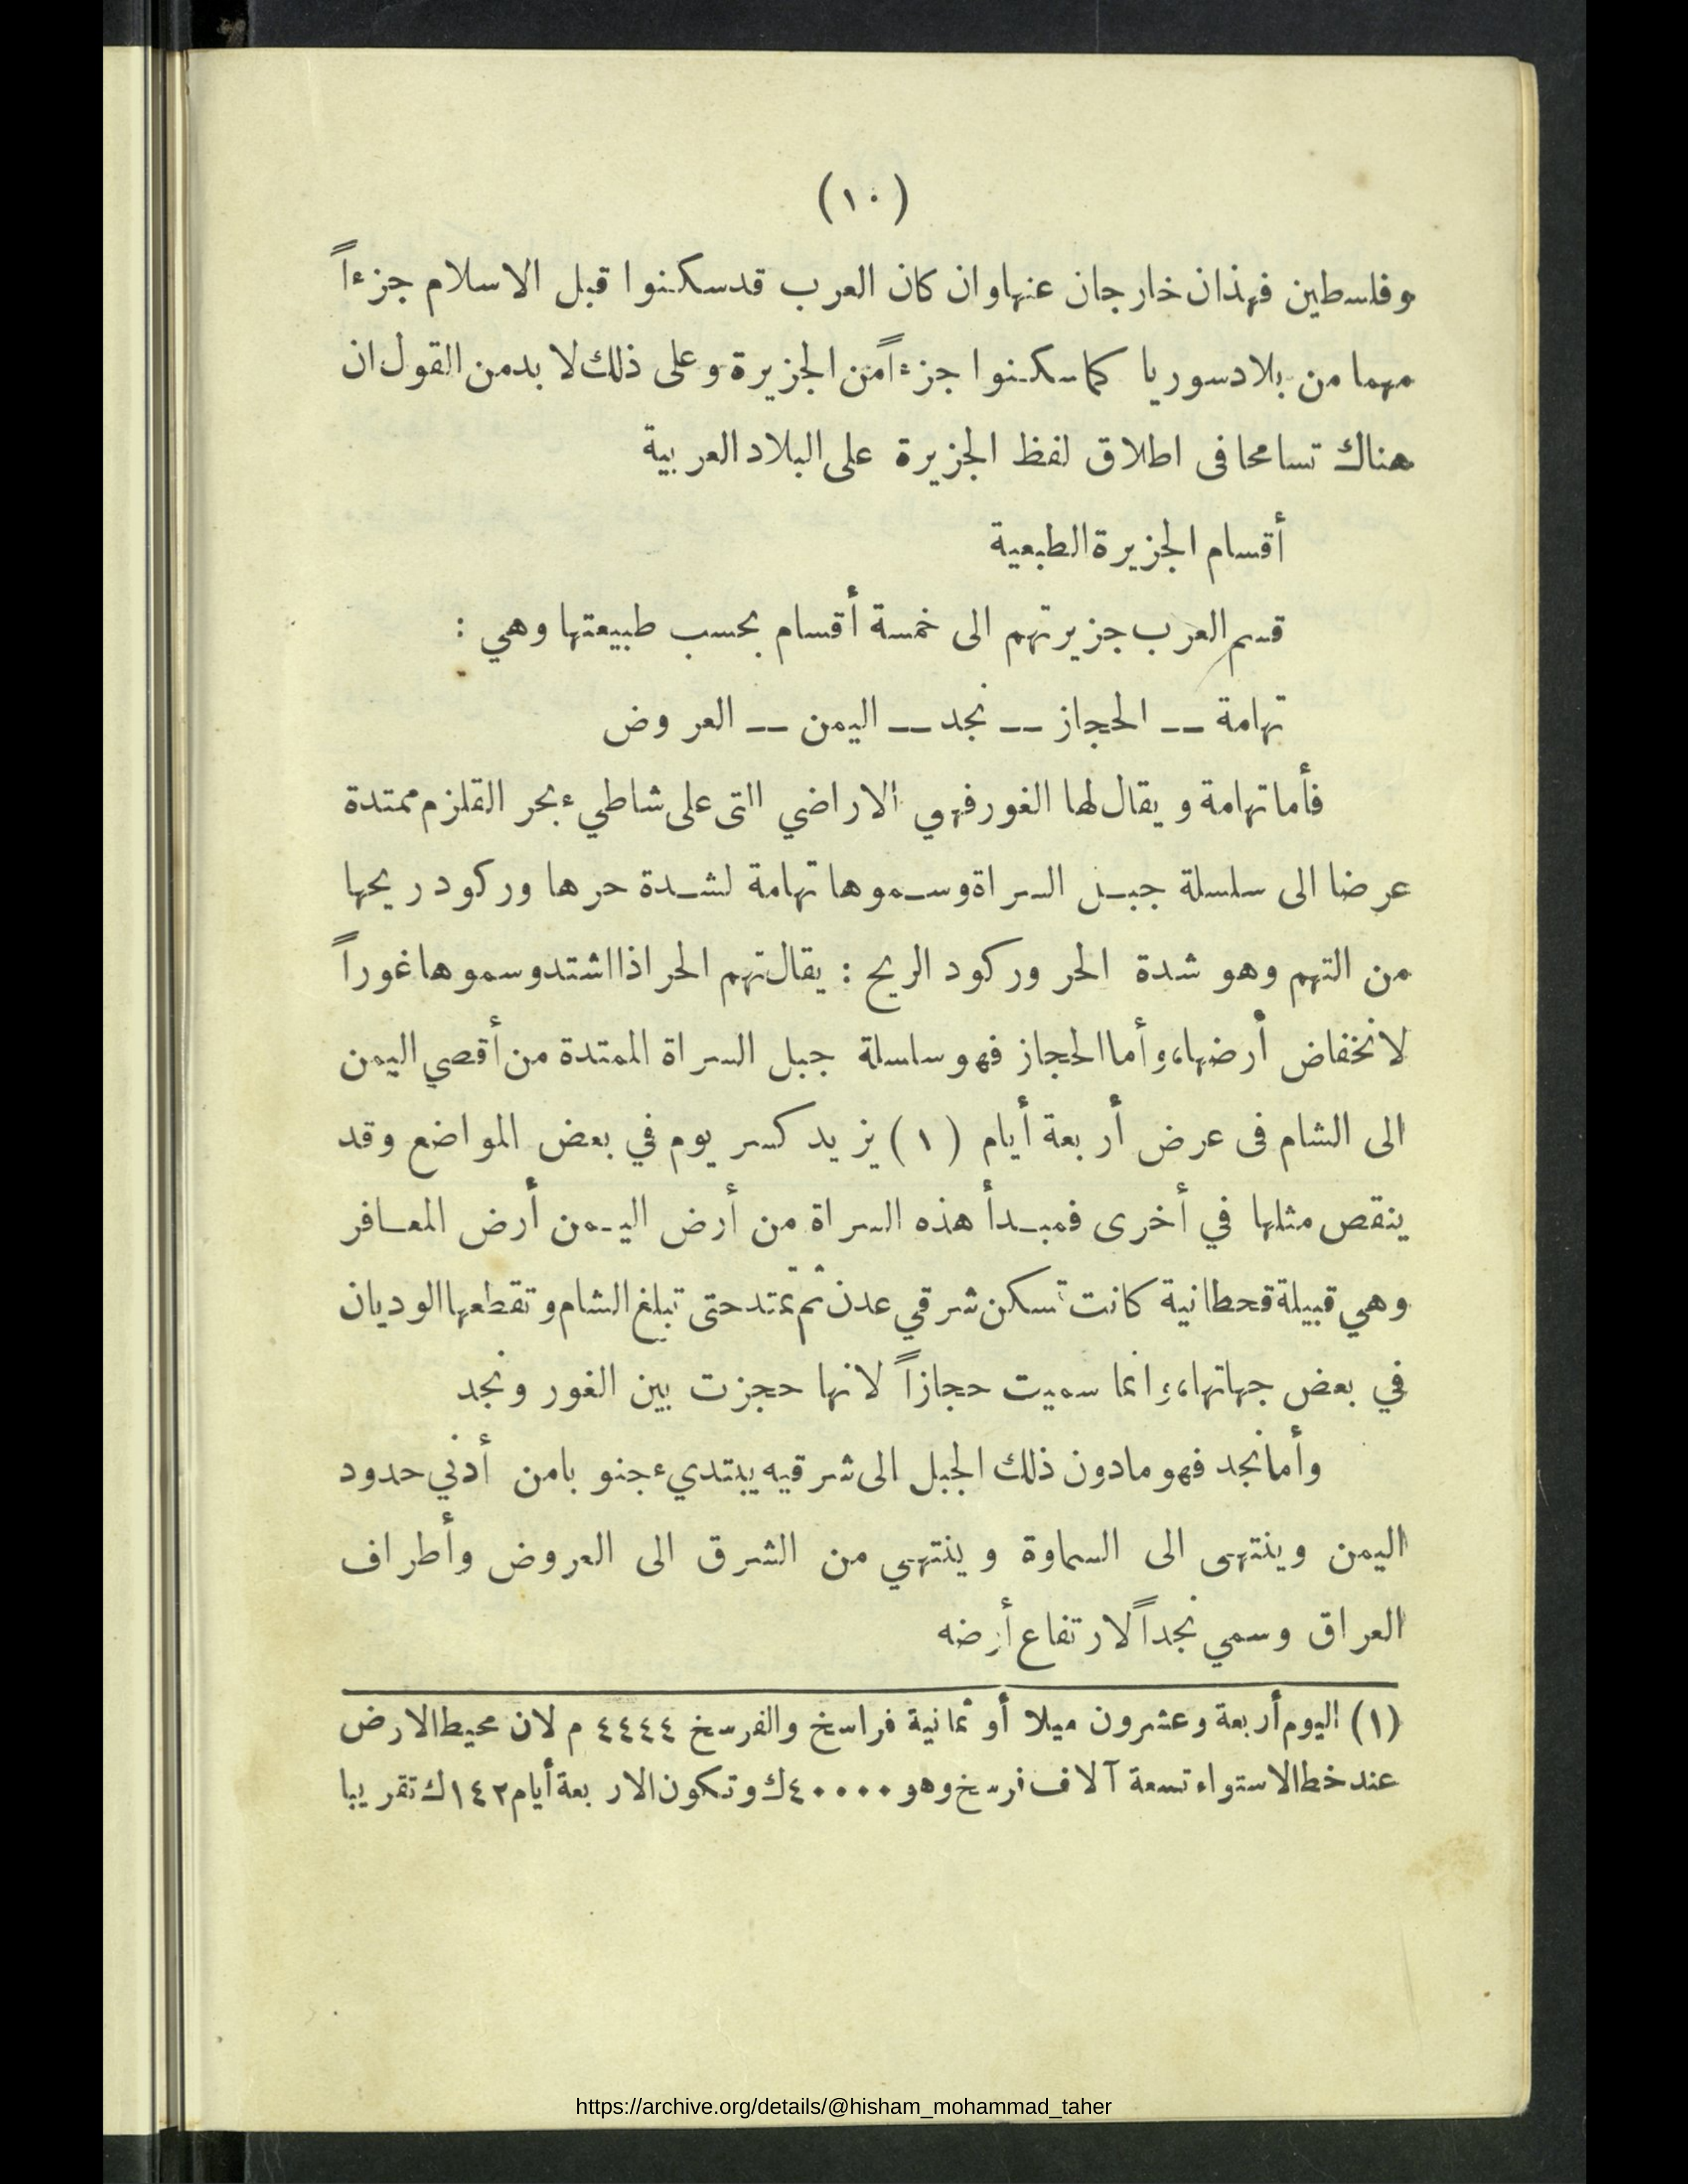 (١٠)
وفلسطين فهذان خارجان عنها وان كان العرب قد سكنوا قبل الاسلام جزءاً
مهما من بلاد سوريا كما سكنوا جزءاً من الجزيرة وعلى ذلك لا بد من القول ان
هناك تسامحا فى اطلاق لفظ الجزيرة على البلاد العربية
أقسام الجزيرة الطبعية
قسم العرب جزيرتهم الى خمسة أقسام بحسب طبيعتها وهي :
تهامة -- الحجاز -- نجد -- اليمن -- العروض
فأما تهامة ويقال لها الغور فهي الاراضي التى على شاطيء بحر القلزم ممتدة
عرضا الى سلسلة جبل السراة وسموها تهامة لشدة حرها وركود ريحها
من التهم وهو شدة الحر وركود الريح : يقال تهم الحر اذا اشتد وسموها غوراً
لانخفاض أرضها، وأما الحجاز فهو سلسلة جبل السراة الممتدة من أقصي اليمن
الى الشام فى عرض أربعة أيام (١) يزيد كسر يوم في بعض المواضع وقد
ينقص مثلها في أخرى فمبدأ هذه السراة من أرض اليمن أرض المعافر
وهي قبيلة قحطانية كانت تسكن شرقي عدن ثم تمتد حتى تبلغ الشام وتقطعها الوديان
في بعض جهاتها، وانما سميت حجازاً لانها حجزت بين الغور ونجد
وأما نجد فهو مادون ذلك الجبل الى شرقيه يبتديء جنوبا من أدني حدود
اليمن وينتهى الى السماوة وينتهي من الشرق الى العروض وأطراف
العراق وسمي نجداً لارتفاع أرضه
(١) اليوم أربعة وعشرون ميلا أو ثمانية فراسخ والفرسخ ٤٤٤٤ م لان محيط الارض
عند خط الاستواء تسعة آلاف فرسخ وهو ٤٠٠٠٠ ك وتكون الاربعة أيام ١٤٢ ك تقريبا
https://archive.org/details/@hisham_mohammad_taher